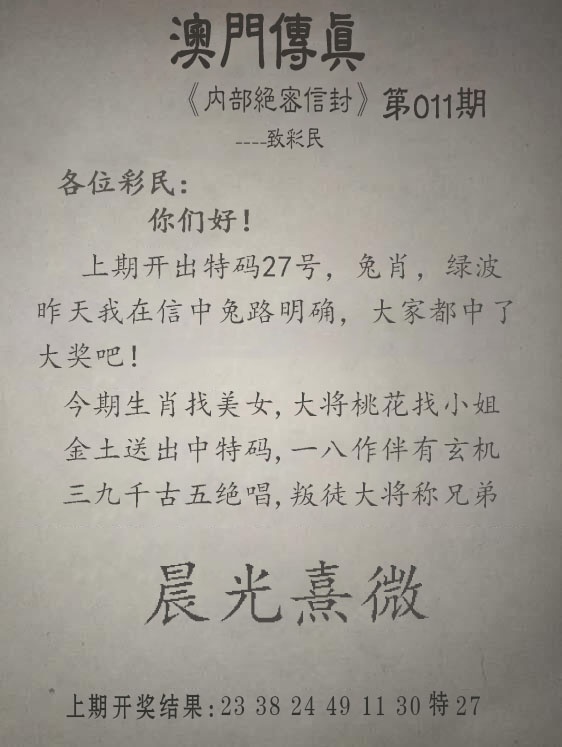 澳門傳真
《内部絕密信封》第011期
----致彩民
各位彩民：
你们好！
上期开出特码27号，兔肖，绿波
昨天我在信中兔路明确，大家都中了
大奖吧！
今期生肖找美女,大将桃花找小姐
金土送出中特码,一八作伴有玄机
三九千古五绝唱,叛徒大将称兄弟
晨光熹微
上期开奖结果:23 38 24 49 11 30 特27